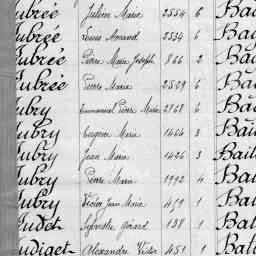 ubrée Julien Marie 2554 6 Ba
ubrée Louis Amand 2534 6 Ba
ubrée Pierre Marie Joseph 866 2 Ba
ubrée Pierre Marie 2529 6 Ba
ubry Emmanuel Pierre Marie 2768 6 Ba
ubry Eugène Marie 1464 3 Bai
ubry Jean Marie 1426 3 Bail
ubry Pierre Marie 1992 4 Ba
ubry Victor Jean Marie 1 Bal
udet Sylvestre Girard 138 1 Bal
udiget Alexandre Victor 451 1 Bal